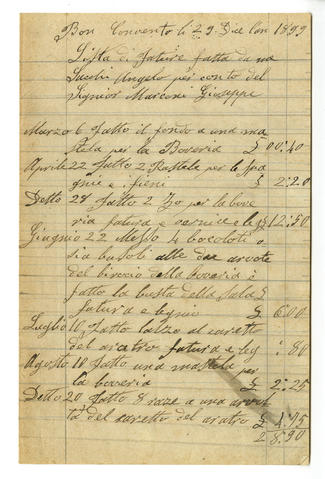 Bon Convento li 29 Dic lan 1899
Lista di fature fatta da me
Iacobi Angelo per conto del
Signior Marconi Giuseppe
Marzo 6 fatto il fondo a una ma
stela per la Boveria £ 00:40
Aprile 22 fatto 2 Rastele per le
gnie e fieni £ 2:20
Detto 28 fatto 2 per la bove
ria fatura e vernice e £ 12:50
Giugnio 22 Messo 4 bocoloti o
sia busoli alle doe arvote
del birocio della boveria e
fatto la busta della Sala
fatura e legnio £ 6:00
Luglio 10 fatto alzo al caretto
del aratro fatura e leg : 80
Agosto 10 fatto una mastela per
la boveria £ 2:25
Detto 20 fatto 8 raze a una
del caretto del aratro £ 4:75
28:90